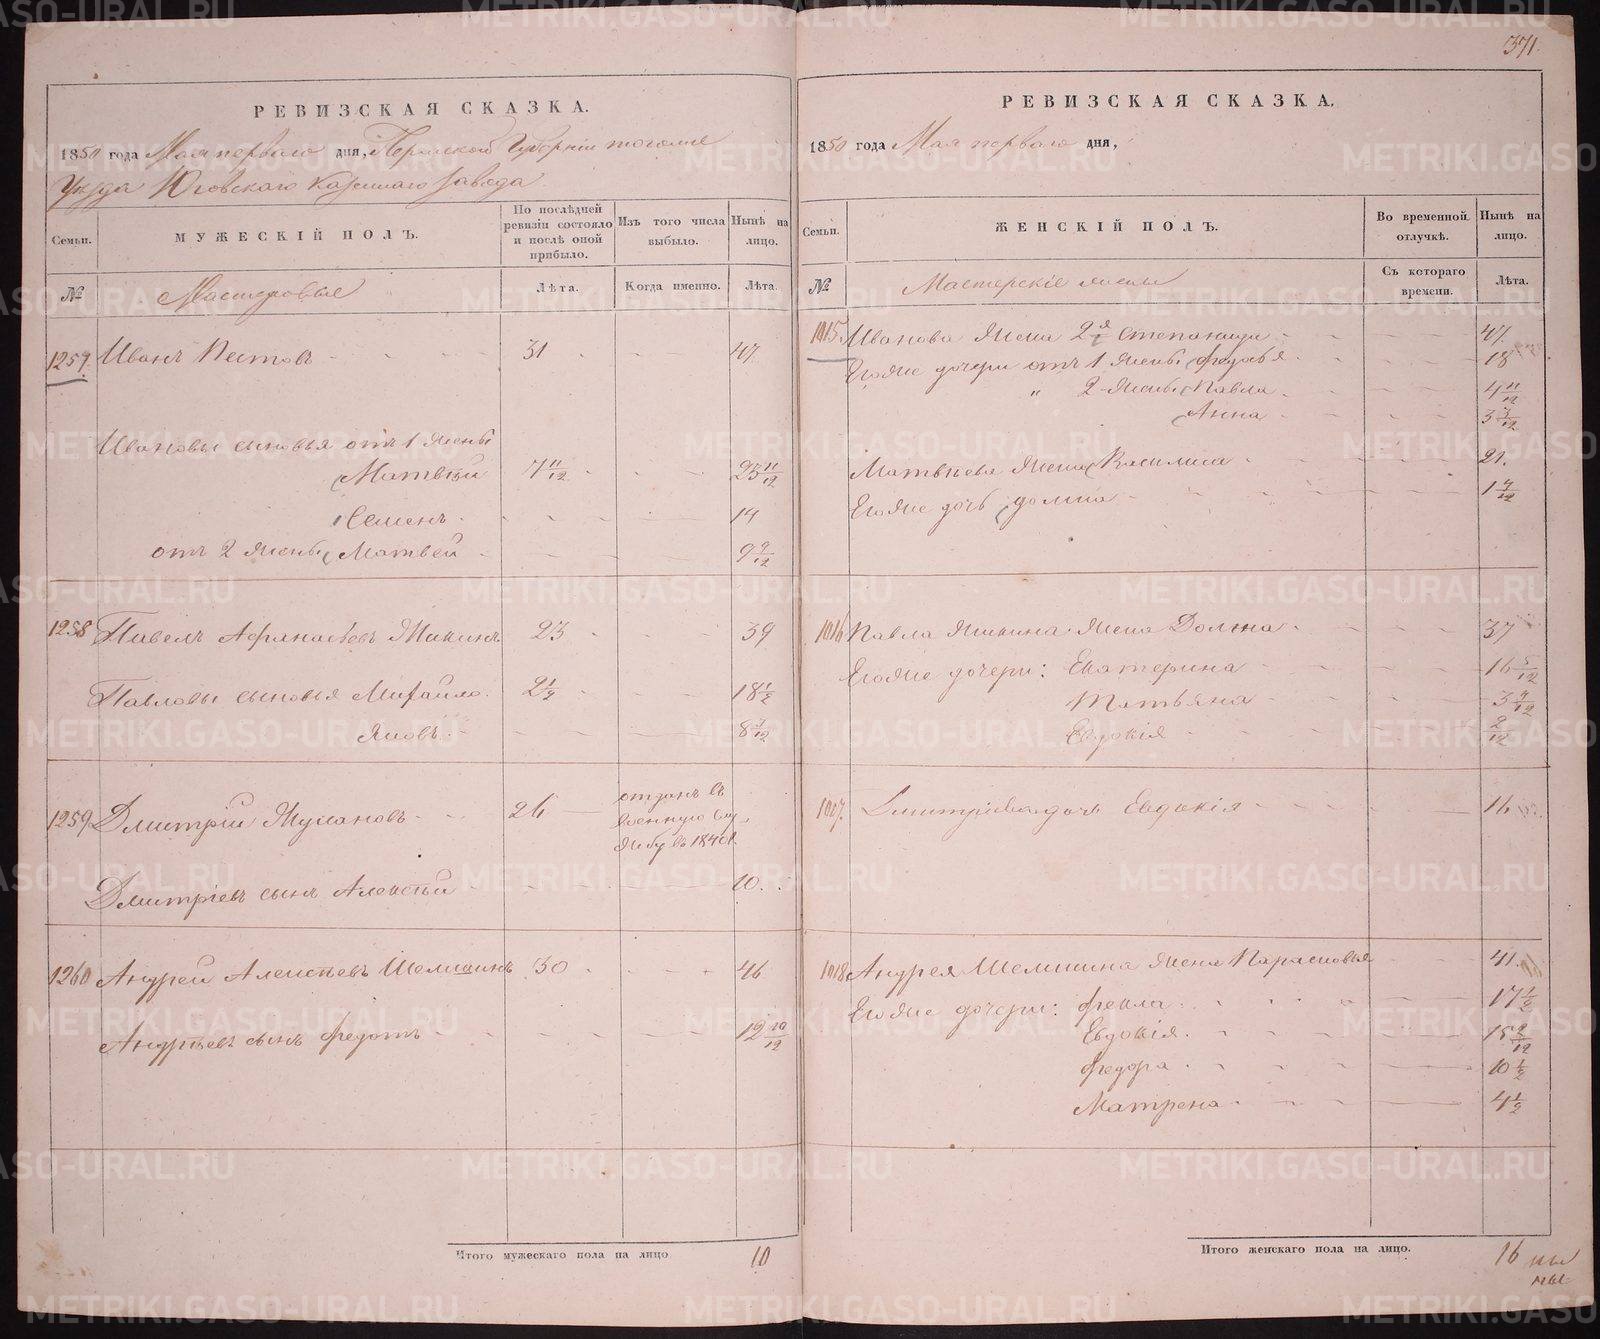 371.
РЕВИЗСКАЯ СКАЗКА.
1850 года Мая перваго дня, Пермской Губерніи тогоже
Уезда Юговскаго Казеннаго завода
Семьи. МУЖЕСКІЙ ПОЛЪ. По послѣдней ревизіи состояло и послѣ оной прибыло. Изъ того числа выбыло. Нынѣ на лицо.
№ Мастеровые Лѣта. Когда именно. Лѣта.
1257 Иванъ Пестовъ 31 47
Ивановы сыновья отъ 1 жены
Матвѣй 7 11/12 23 11/12
Семенъ 14
отъ 2 жены Матвей 9 9/12
1258 Павелъ Афанасьевъ Жикинъ 23 39
Павловы сыновья Михайло 2 1/2 18 1/2
Яковъ 8 7/12
1259 Дмитрій 26 отданъ въ
военную служ
бу въ 184
Дмитріевъ сынъ Алексѣй 10
1260 Андрей Алексѣевъ Шелпинъ 30 46
Андрѣевъ сынъ Федотъ 12 10/12
Итого мужескаго пола на лицо 10
РЕВИЗСКАЯ СКАЗКА.
1850 года Мая перваго дня,
Семьи. ЖЕНСКІЙ ПОЛЪ. Во временной отлучкѣ. Нынѣ на лицо.
№ Мастерскіе жены Съ котораго времени. Лѣта.
1015 Иванова жена 2я Степанида 47
Егоже дочери отъ 1 жены Федосья 18
" 2 жены Павла 4 11/12
Анна 3 3/12
Матвѣева жена Василиса 21
Егоже дочь Домна 1 4/12
1016 Павла Жикина жена Домна 37
Егоже дочери: Екатерина 16 5/12
Татьяна 3 9/12
Евдокія 2/12
1017 Дмитріева дочь Евдокія 16
1018 Андрея Шелпина жена Парасковья 41
Егоже дочери: Фекла 17 1/2
Евдокія 15 2/12
Федора 10 1/2
Матрена 4 1/2
Итого женскаго пола на лицо. 16
METRIKI.GASO-URAL.RU